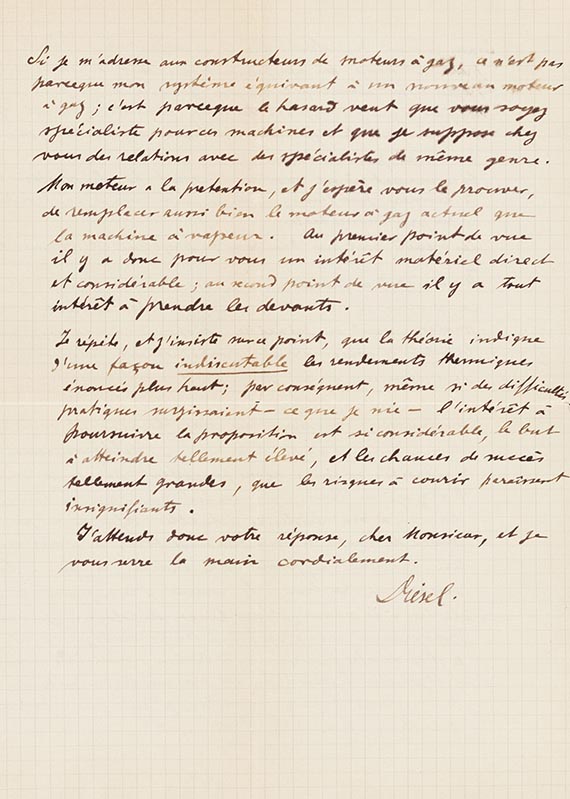 Si je m'adresse aux constructeurs de moteurs à gaz, ce n'est pas
parceque mon système équivant à un nouveau moteur
à gaz; c'est parceque le hasard veut que vous soyez
spécialiste pour ces machines et que je suppose chez
vous des relations avec des spécialistes de même genre.
Mon moteur a la pretention, et j'espère vous le prouver,
de remplacer aussi bien le moteur à gaz actuel que
la machine à vapeur. Au premier point de vue
il y a donc pour vous un intérêt matériel direct
et considérable; au second point de vue il y a tout
intérêt à prendre les devants.
Je répète, et j'insiste sur ce point, que la théorie indique
d'une façon indiscutable les rendements thermiques
énoncés plus haut; par conséquent, même si des difficultés
pratiques surgissaient - ce que je nie - l'intérêt à
poursuivre la proposition est si considérable, le but
à atteindre tellement élevé, et les chances de succès
tellement grandes, que les risques à courir paraissent
insignifiants.
J'attends donc votre réponse, cher Monsieur, et je
vous serre la main cordialement.
Diesel.